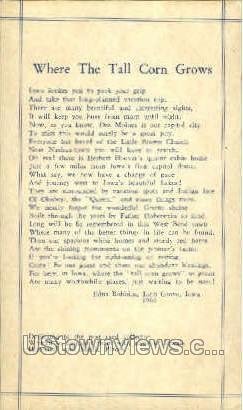 Where The Tall Corn Grows
Iowa invites you to pack your grip
And take that long-planned vacation trip.
There are many beautiful and interesting sights,
It will keep you busy from morn until night.
Now, as you know, Des Moines is our capitol city
To miss this would surely be a great pity.
Everyone has heard of the Little Brown Church
Near Nashua town you will have to search.
On real there is Herbert Hoover's quaint cabin home
Just a few miles from Iowa's first capitol dome.
What say, we now have a change of pace
And journey west to Iowa's beautiful lakes?
They are surrounded by vacation spots and Indian lore
Of Okoboji, the "Queen," and many things more.
We nearly forgot the wonderful Grotto shrine
Built through the years by Father Dobberstein so kind.
Long will he be remembered in this West Bend town
Where many of the better things in life can be found.
Then our spacious white homes and sturdy red barns
Are the shining monuments on the pioneer's farms.
If you're looking for sight-seeing or resting
Come! Be our guest and share our abundant blessings.
For here, in Iowa, where the "tall corn grows" so grand
Are many worthwhile places, just waiting to be seen!
Edna Robinson, Iowa
1960
UStownviews.com